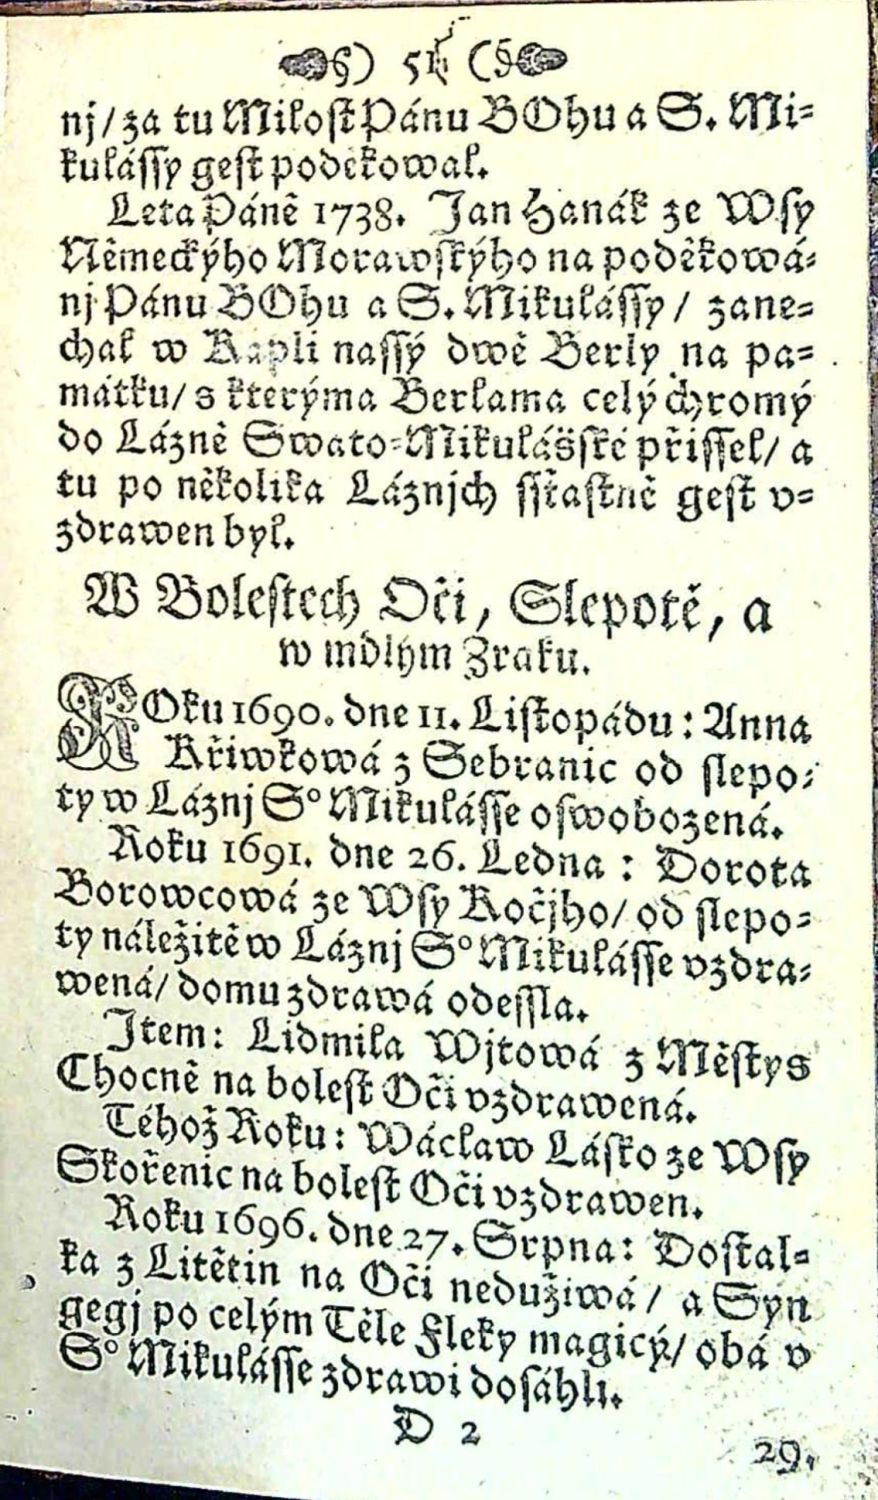 §) 51 (§
nj/ za tu Miloſt Pánu BOhu a S. Mi-
kuláſſy geſt podĕkowal.
Leta Páně 1738. Jan Hanák ze Wſy
Německýho Morawſkýho na poděkowá-
nj Pánu BOhu a S. Mikuláſſy/ zane-
chal w Kapli naſſý dwě Berly na pa-
mátku/ s kterýma Berlama celý chromý
do Lázně Swato-Mikulášſké přiſſel/ a
tu po několika Láznjch ſſťaſtně geſt v-
zdrawen byl.
W Boleſtech Oči, Slepotě, a
w mdlým Zraku.
ROku 1690. dne 11. Liſtopádu: Anna
Křiwkowá z Sebranic od ſlepo-
ty w Láznj Sº Mikuláſſe oſwobozená.
Roku 1691. dne 26. Ledna: Dorota
Borowcowá ze Wſy Kočjho/ od ſlepo-
ty náležitě w Láznj Sº Mikuláſſe vzdra-
wená/ domu zdrawá odeſſla.
Jtem: Lidmila Wjtowá z Měſtys
Chocně na boleſt Oči vzdrawená.
Téhož Roku: Wáclaw Láſko ze Wſy
Skořenic na boleſt Oči vzdrawen.
Roku 1696. dne 27. Srpna: Doſtal-
ka z Litětin na Oči nedužiwá/ a Syn
gegj po celým Těle Fleky magicý/ obá v
Sº Mikuláſſe zdrawi doſáhli.
D 2
29.